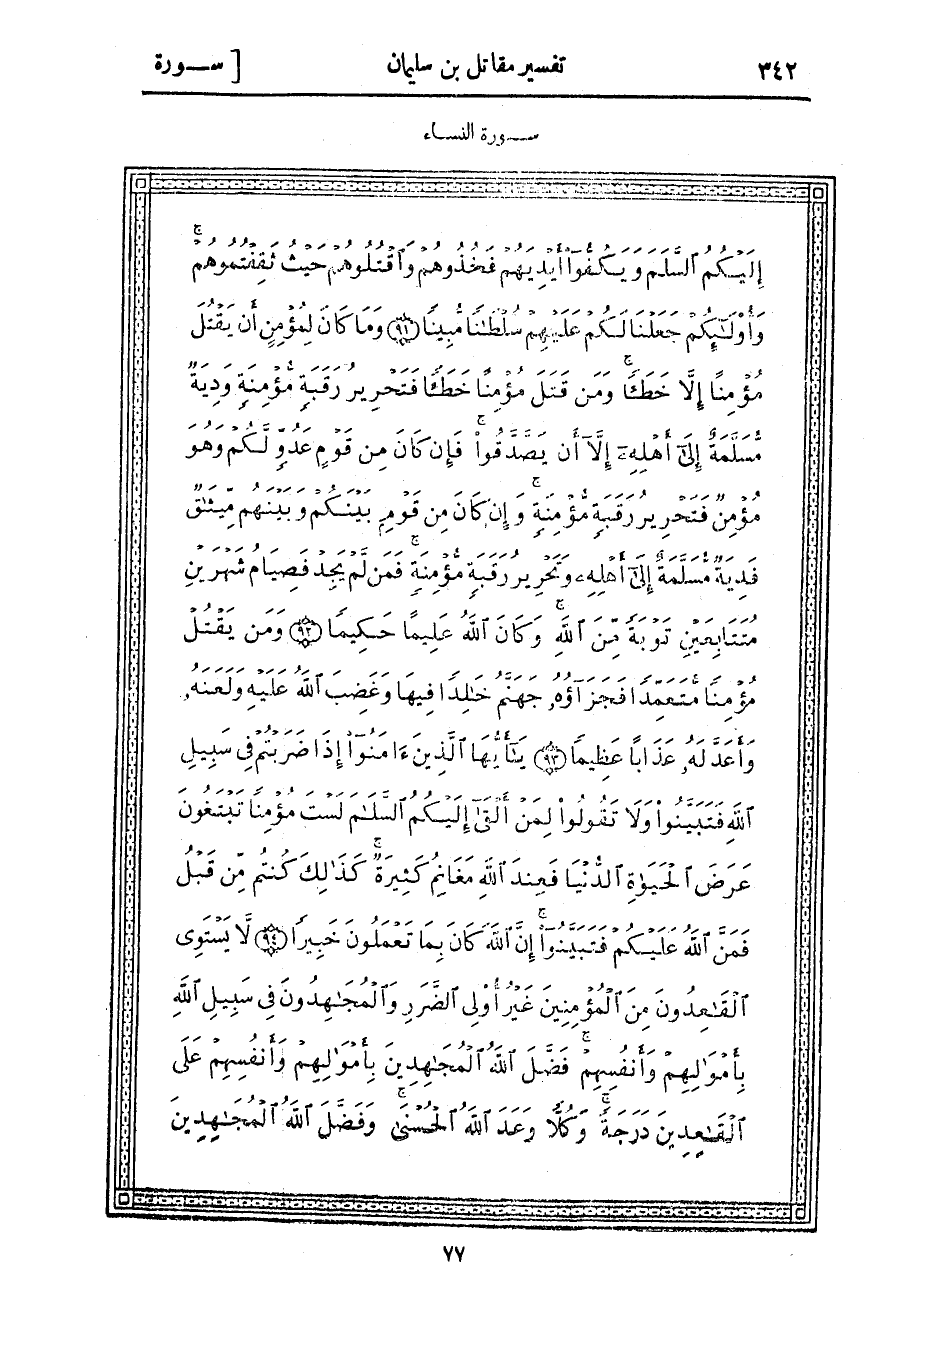 ٣٤٢ تفسير مقاتل بن سليمان [ ســورة
ســورة النساء
إِلَيْكُمُ ٱلسَّلَمَ وَيَكُفُّوٓا۟ أَيْدِيَهُمْ فَخُذُوهُمْ وَٱقْتُلُوهُمْ حَيْثُ ثَقِفْتُمُوهُمْ ۚ
وَأُو۟لَـٰٓئِكُمْ جَعَلْنَا لَكُمْ عَلَيْهِمْ سُلْطَـٰنًا مُّبِينًا ﴿٩١﴾ وَمَا كَانَ لِمُؤْمِنٍ أَن يَقْتُلَ
مُؤْمِنًا إِلَّا خَطَـًٔا ۚ وَمَن قَتَلَ مُؤْمِنًا خَطَـًٔا فَتَحْرِيرُ رَقَبَةٍ مُّؤْمِنَةٍ وَدِيَةٌ
مُّسَلَّمَةٌ إِلَىٰٓ أَهْلِهِۦٓ إِلَّآ أَن يَصَّدَّقُوا۟ ۚ فَإِن كَانَ مِن قَوْمٍ عَدُوٍّ لَّكُمْ وَهُوَ
مُؤْمِنٌ فَتَحْرِيرُ رَقَبَةٍ مُّؤْمِنَةٍ ۖ وَإِن كَانَ مِن قَوْمٍۭ بَيْنَكُمْ وَبَيْنَهُم مِّيثَـٰقٌ
فَدِيَةٌ مُّسَلَّمَةٌ إِلَىٰٓ أَهْلِهِۦ وَتَحْرِيرُ رَقَبَةٍ مُّؤْمِنَةٍ ۖ فَمَن لَّمْ يَجِدْ فَصِيَامُ شَهْرَيْنِ
مُتَتَابِعَيْنِ تَوْبَةً مِّنَ ٱللَّهِ ۗ وَكَانَ ٱللَّهُ عَلِيمًا حَكِيمًا ﴿٩٢﴾ وَمَن يَقْتُلْ
مُؤْمِنًا مُّتَعَمِّدًا فَجَزَآؤُهُۥ جَهَنَّمُ خَـٰلِدًا فِيهَا وَغَضِبَ ٱللَّهُ عَلَيْهِ وَلَعَنَهُۥ
وَأَعَدَّ لَهُۥ عَذَابًا عَظِيمًا ﴿٩٣﴾ يَـٰٓأَيُّهَا ٱلَّذِينَ ءَامَنُوٓا۟ إِذَا ضَرَبْتُمْ فِى سَبِيلِ
ٱللَّهِ فَتَبَيَّنُوا۟ وَلَا تَقُولُوا۟ لِمَنْ أَلْقَىٰٓ إِلَيْكُمُ ٱلسَّلَـٰمَ لَسْتَ مُؤْمِنًا تَبْتَغُونَ
عَرَضَ ٱلْحَيَوٰةِ ٱلدُّنْيَا فَعِندَ ٱللَّهِ مَغَانِمُ كَثِيرَةٌ ۚ كَذَٰلِكَ كُنتُم مِّن قَبْلُ
فَمَنَّ ٱللَّهُ عَلَيْكُمْ فَتَبَيَّنُوٓا۟ ۚ إِنَّ ٱللَّهَ كَانَ بِمَا تَعْمَلُونَ خَبِيرًا ﴿٩٤﴾ لَّا يَسْتَوِى
ٱلْقَـٰعِدُونَ مِنَ ٱلْمُؤْمِنِينَ غَيْرُ أُو۟لِى ٱلضَّرَرِ وَٱلْمُجَـٰهِدُونَ فِى سَبِيلِ ٱللَّهِ
بِأَمْوَٰلِهِمْ وَأَنفُسِهِمْ ۚ فَضَّلَ ٱللَّهُ ٱلْمُجَـٰهِدِينَ بِأَمْوَٰلِهِمْ وَأَنفُسِهِمْ عَلَى
ٱلْقَـٰعِدِينَ دَرَجَةً ۚ وَكُلًّا وَعَدَ ٱللَّهُ ٱلْحُسْنَىٰ ۚ وَفَضَّلَ ٱللَّهُ ٱلْمُجَـٰهِدِينَ
٧٧